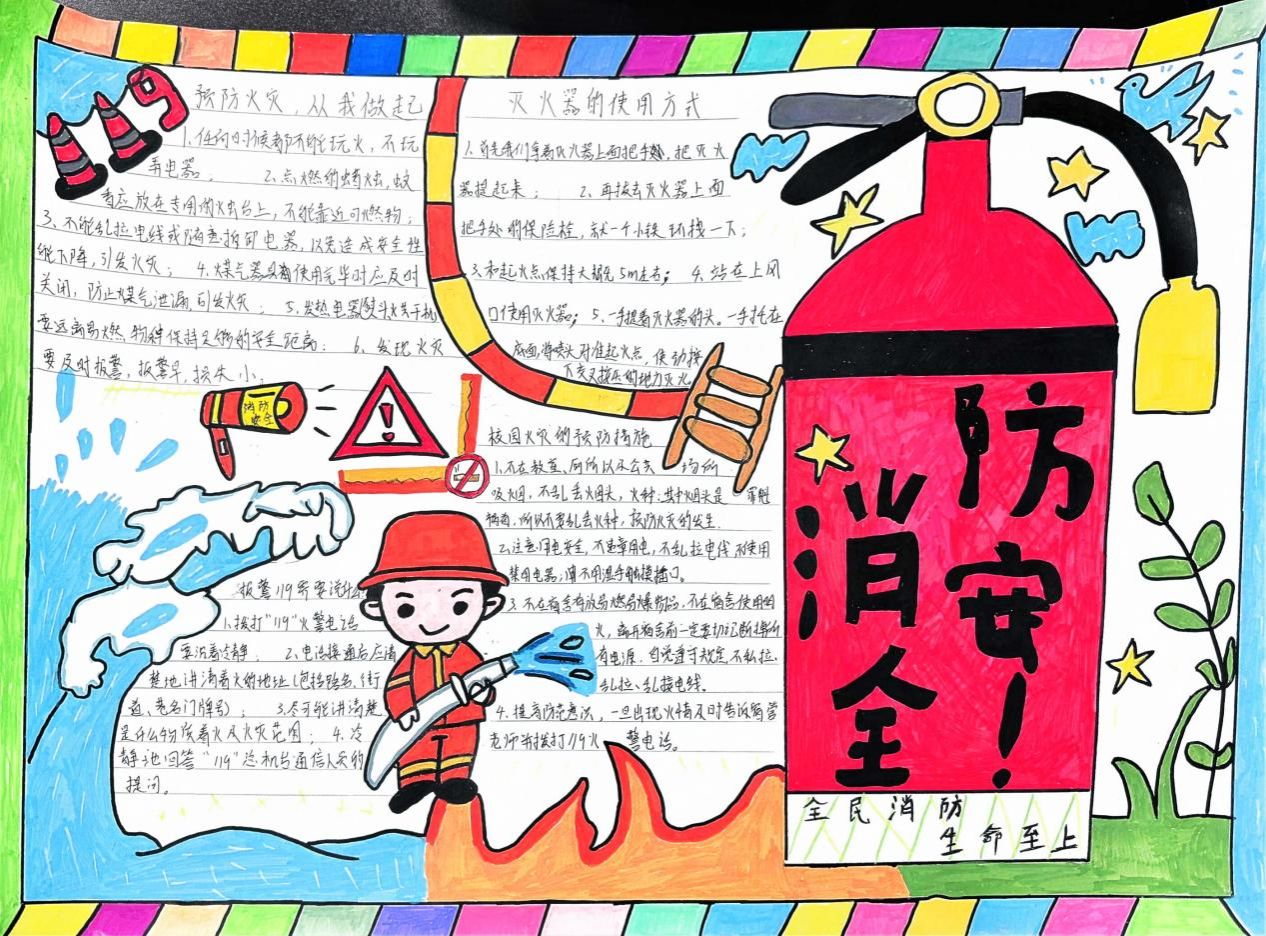 119
预防火灾，从我做起
1、任何时候都不能玩火，不玩
弄电器； 2、点燃的蜡烛，蚊
香应放在专用的烛台上，不能靠近可燃物；
3、不能乱拉电线或随意拆卸电器，以免造成安全性
能下降，引发火灾； 4、煤气器具使用完毕时应及时
关闭，防止煤气泄漏，引发火灾； 5、发热电器熨斗火
要远离易燃物种保持足够的安全距离； 6、发现火灾
要及时报警，报警早，损失小。
消防
安全
灭火器的使用方式
1、首先我们拿着灭火器上面把手，把灭火
器提起来； 2、再拔去灭火器上面
把手处的保险栓，就一个小铁环拽一下；
3、和起火点保持大概5m左右； 4、站在上风
口使用灭火器； 5、一手提着灭火器的头。一手托在
底面，将喷头对准起火点，使劲按
下去灭火。
校园火灾的预防措施
1、不在教室、厕所以及公共场所
吸烟，不乱丢烟头，火种；其中烟头是罪魁
祸首，所以不要乱丢火种，预防火灾的发生。
2、注意用电安全，不违章用电，不乱拉电线不使用
禁用电器，请不用湿手触摸插口。
3、不在宿舍存放易燃易爆物品，不在宿舍使用明
火，离开宿舍前一定要切记断掉所
有电源，自觉遵守规定，不私拉、
乱拉、乱接电线。
4、提高防范意识，一旦出现火情及时告诉宿管
老师并拨打119火警电话。
报警119需要说什么
1、拨打“119”火警电话
要沉着冷静； 2、电话接通后应清
楚地讲清着火的地址（包括路名、街
道、巷名门牌号）； 3、尽可能讲清楚
是什么物质着火及火灾范围； 4、冷
静地回答“119”总机台通信人员的
提问。
消防
安全！
全民消防
生命至上